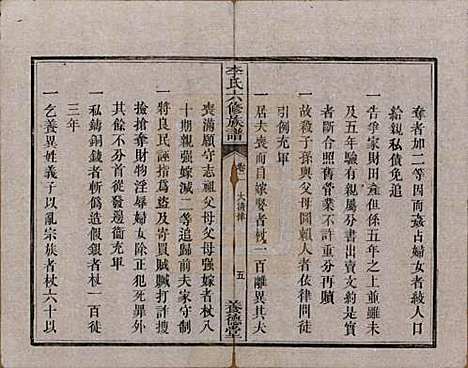 奪者加二等因而姦占婦女者絞人口
給親私債免追
一告爭家財田產但係五年之上並雖未
及五年驗有親屬分書出賣文約是實
者斷合照舊管業不許重分再贖
一故殺子孫與父母圖賴人者依律問擬
引例充軍
一居夫喪而自嫁娶者杖一百離異其夫
李氏六修族譜
卷
大清律
五
養德堂
喪滿願守志祖父母父母強嫁者杖八
十期親強嫁減二等追歸前夫家守制
一將良民誣指爲盜及寄賍打詐搜
撿搶奪財物淫辱婦女除正犯典刑外
其餘不分首從發邊衞充軍
一私鑄銅錢者斬僞造假銀者杖一百徒
三年
一乞養異姓義子以亂宗族者杖六十以